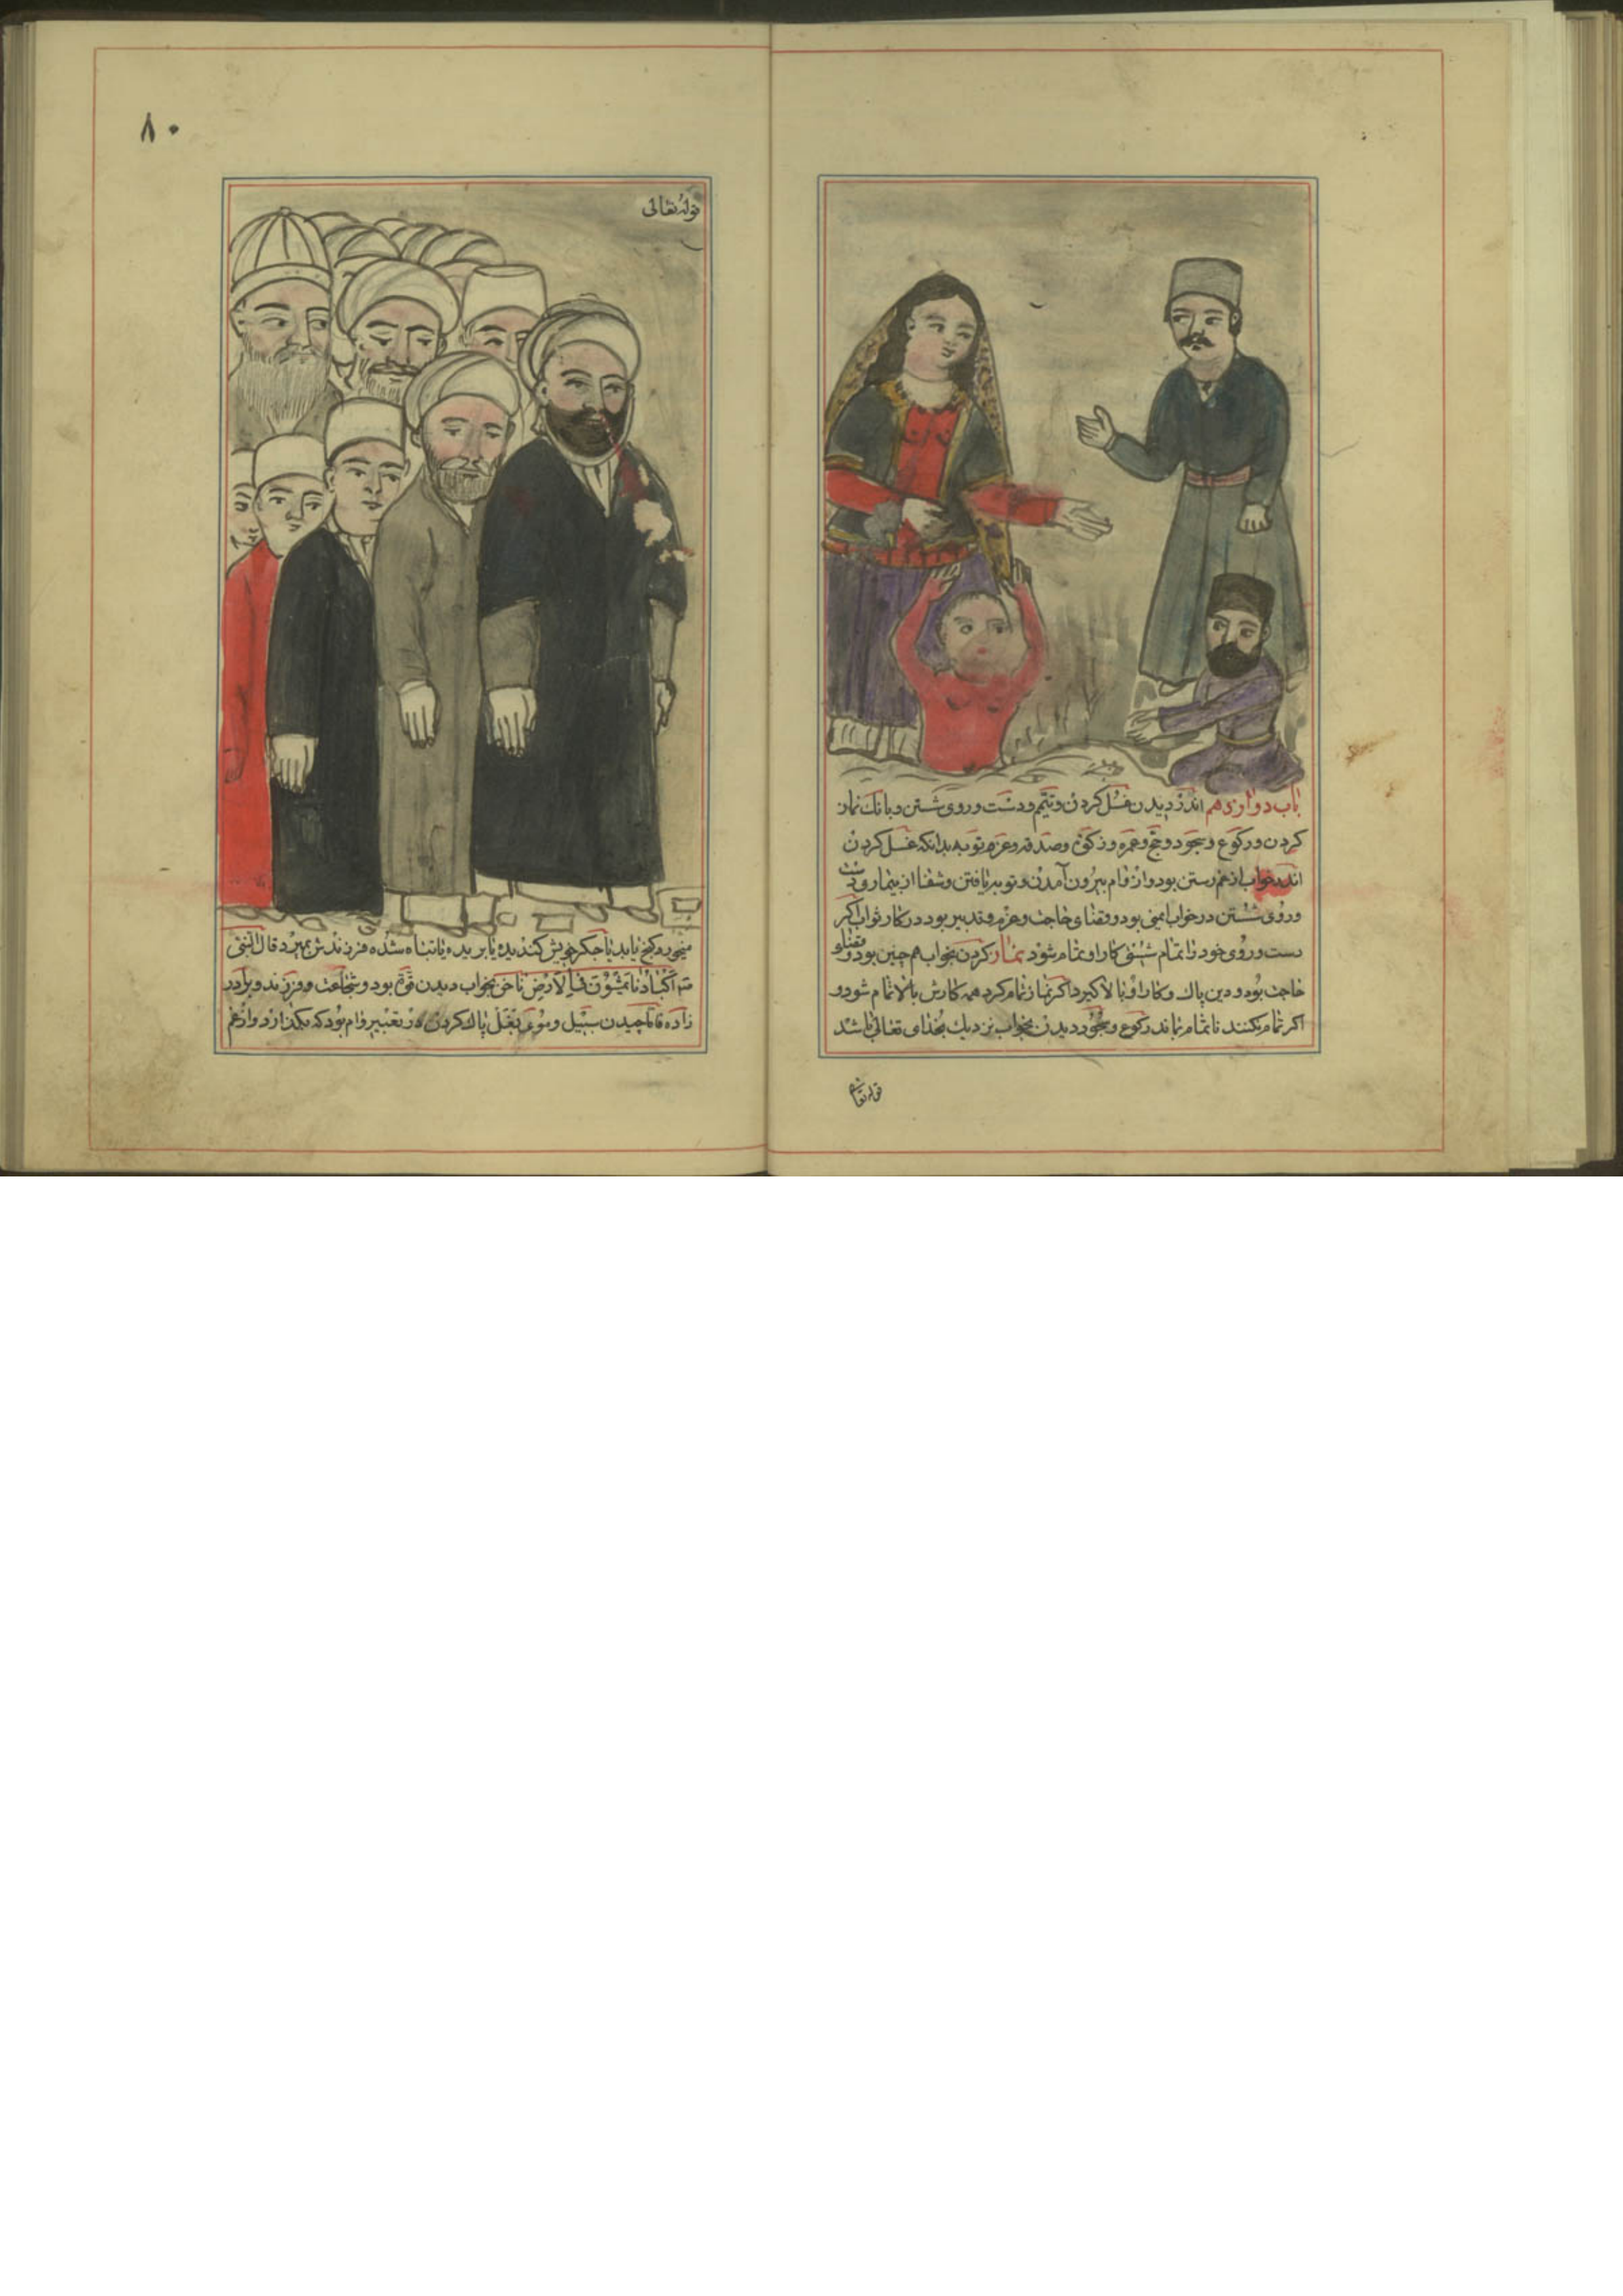 باب دوازدهم اندر دیدن غسل کردن و تیمّم و دست و روی شستن و بانک نماز
کردن و رکوع و سجود و حج و عمره و زکوة و صدقه و عزم توبه بدانکه غسل کردن
اندر خواب از غم رستن بود و از وام بیرون آمدن و توبه یافتن و شفا از بیمار و دست
و روی شستن در خواب ایمنی بود و قضای حاجت و عزم و تدبیر بود در کار ثواب اکر
دست و روی خود را تمام شستی کار او تمام شود نماز کردن بخواب هم چنین بود و قضای
حاجت بود و دین پاک و کار او بالا کیرد اکر نماز تمام کرد همه کارش بالاتمام شود و
اکر تمام نکنند ناتمام بماند رکوع و سجود دیدن بخواب نزدیک بخدای تعالی باشد
قوله تعا
۸۰
قوله تعالی
میخورد کنج یابد یا جکر خویش کندیده یا بریده یا تباه شده فرزندش بمیرد قال النبی
اکبادنا تمشون فی الارض ناخن بخواب دیدن قوّة بود و شجاعت و فرزند و برادر
زاده چیدن سبیل و موی بغل پاک کردن در تعبیر وام بود که بکذارد و از غم